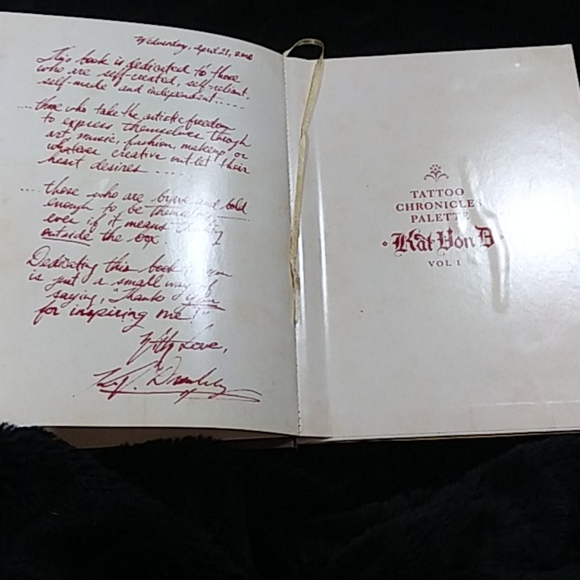 Wednesday, April 21,
This book is dedicated to those
who are self-created, self-reliant,
self-made and independent.....
...those who take the artistic freedom
to express themselves through
art, music, fashion, makeup or
whatever creative outlet their
heart desires .....
....those who are brave and bold
enough to be themselves
even if it means
outside the box
Dedicating this book
is just a small way of
saying, "Thanks
for inspiring me!"
With Love,
TATTOO
CHRONICLES
PALETTE
Kat Von D
VOL I